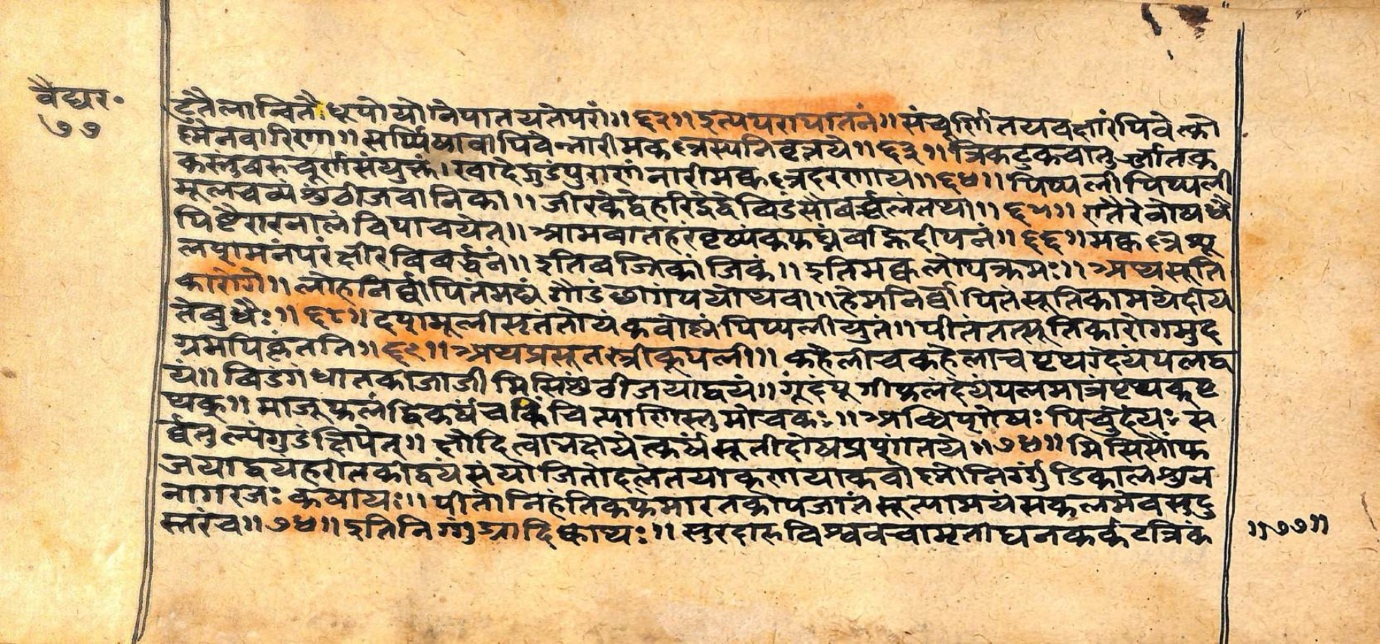 वैद्यर॰
७७
टुतैलान्वितैः धूपो योनेपातयतेपरां॥ ६२॥ इत्यपरापातनं॥ संचूर्णितयवक्षारंपिवेत्को
ष्मेनवारिणा॥ सर्प्पिषावापिवेन्नारीमक्कल्लस्यनिवृत्तये॥ ६३॥ त्रिकटुकचातुर्जातक
कुस्तुंवरुचूर्णसंयुक्तं। खादेद्गुडंपुराणंनारीमक्कल्लदरणाय॥ ६४॥ पिप्पलीपिप्पली
मूलचव्यशुंठीजवानिका॥ जीरकेद्वेहरिद्रेद्वेविडंसौवर्च्चलंतथा॥ ६५॥ एतैरेवौषधैः
पिष्टैरारनालंविपाचयेत्॥ आमवातहरंवृष्यंकफघ्नंवह्निदीपनं॥ ६६॥ मक्कल्लशू
लशमनंपरंक्षीरविवर्द्धनं॥ इतिवज्रिकांजिकं॥ इतिमक्कलोपक्रमः॥ अथसूति
कारोगे॥ लोहनिर्व्वापितंमद्यं गौडंछागंपयोथवा॥ हेमनिर्व्वापितंसूतिकामयेदेय
तेबुधैः॥ ६८॥ दशमूलीसृतंतोयंकवोष्णंपिप्पलीयुतं॥ पीतंतत्सूतिकारोगमुद
ग्रमपिकृंतति॥ ६९॥ अथप्रसूतस्त्रीकूपली॥ कहेलीचकहेलाचपृथग्देयंपलद्व
यं॥ विडंगधातकीजाजीमिसिशुंठीजयाद्वयं॥ गूदंपूगीफलंदेयंपलमात्रंपृथक्पृ
थक्॥ माजूफलंद्विकर्षंच तिस्तुमोचकः॥ अब्धिशोषः पिचुर्देयः स
र्व्वतुल्यंगुडंक्षिपेत्॥ सूतीदोषप्रशांतये॥ ७४॥ मिसिसौंफ
जयाद्वयहरीतकीद्वय निर्गुंडिकालशुन
नागरजः कषायः॥ पीतोनिहंतिकफमारुतकोपजातंसूत्यामयंसकलमेवसुदु
स्तरंच॥ ७५॥ इतिनिर्गुंड्यादिक्वाथः॥ सुरदारुविश्ववचामृताघनकर्कटत्रिकं
॥७७॥